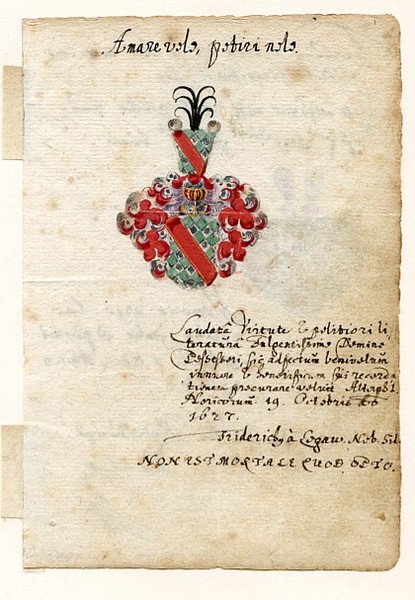 Amare volo, potiri nolo.
Laudata Virtute & politiori li
teratura
Domino
sic adfectum benivolum
& sui recorda
tionem procurare voluit Altorphi
Noricorum 19. Octobris
1627.
Friderich à Logaw. Nob. Sil.
NON EST MORTALE QUOD OPTO.